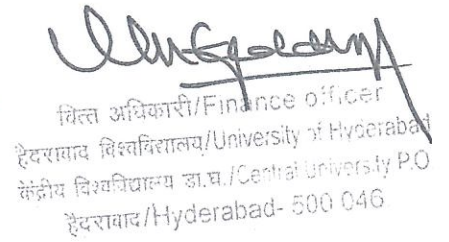 वित्त अधिकारी/Finance officer
हैदराबाद विश्वविद्यालय/University of Hyderabad
केंद्रीय विश्वविद्यालय डा.घ./Central University P.O
हैदराबाद/Hyderabad- 500 046